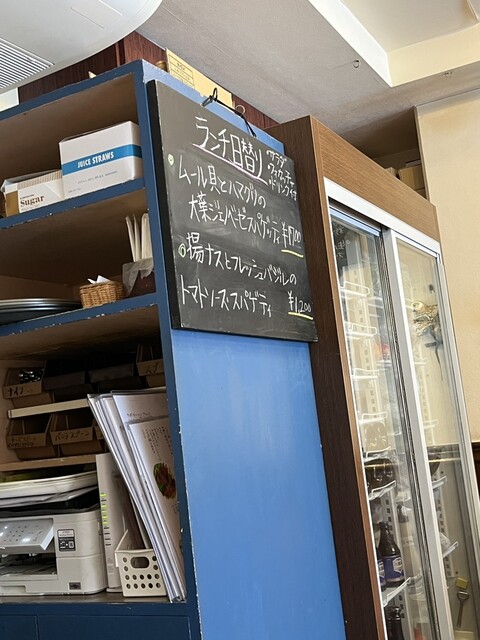 ランチ日替り
サラダ
フォカッチャ
ドリンク付
ムール貝とハマグリの
大葉ジェノベーゼスパゲッティ ¥1,700
揚ナスとフレッシュバジルの
トマトソーススパゲティ ¥1,200
JUICE STRAWS
Sugar
ナイフ